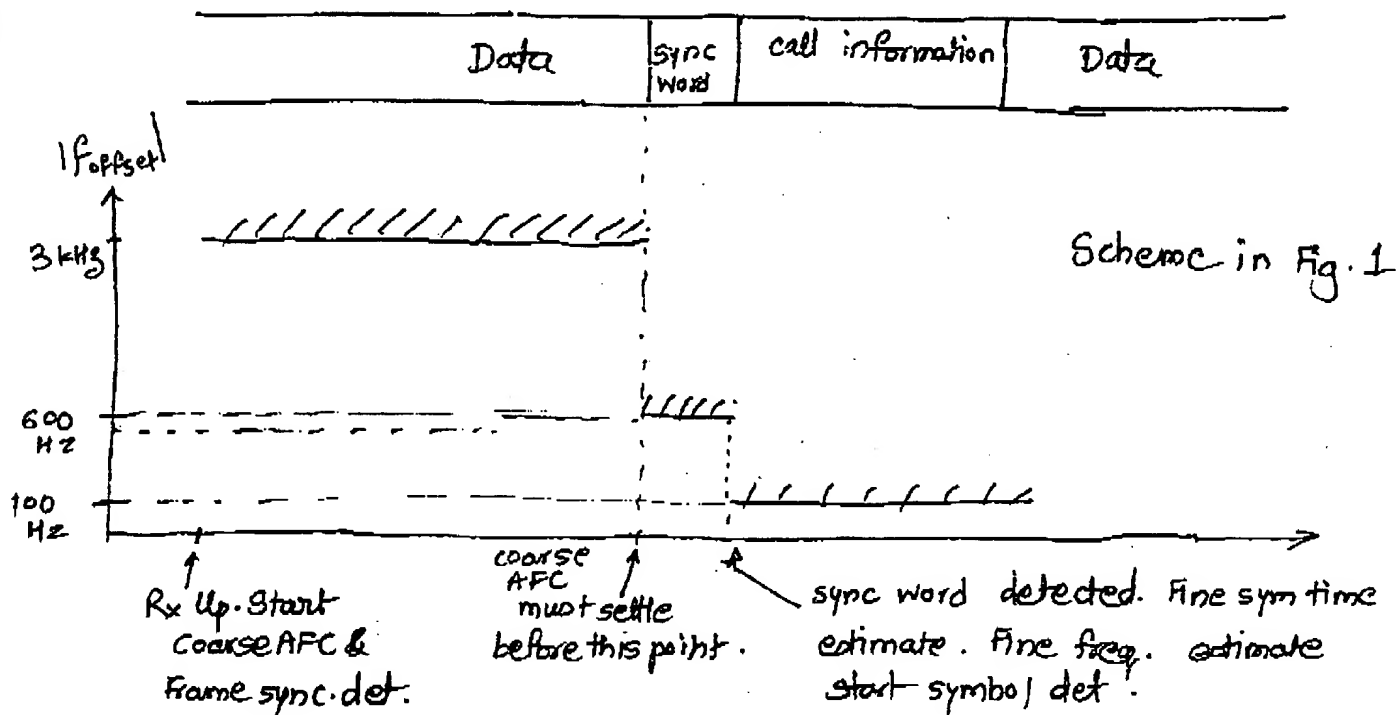 Data
sync word
call information
Data
|f offset|
3 kHz
Scheme in Fig. 1
600 Hz
100 Hz
Rx Up. Start
coarse AFC &
Frame sync. det.
coarse
AFC
must settle
before this point.
sync word detected. Fine sym time
estimate. Fine freq. estimate
start symbol det.